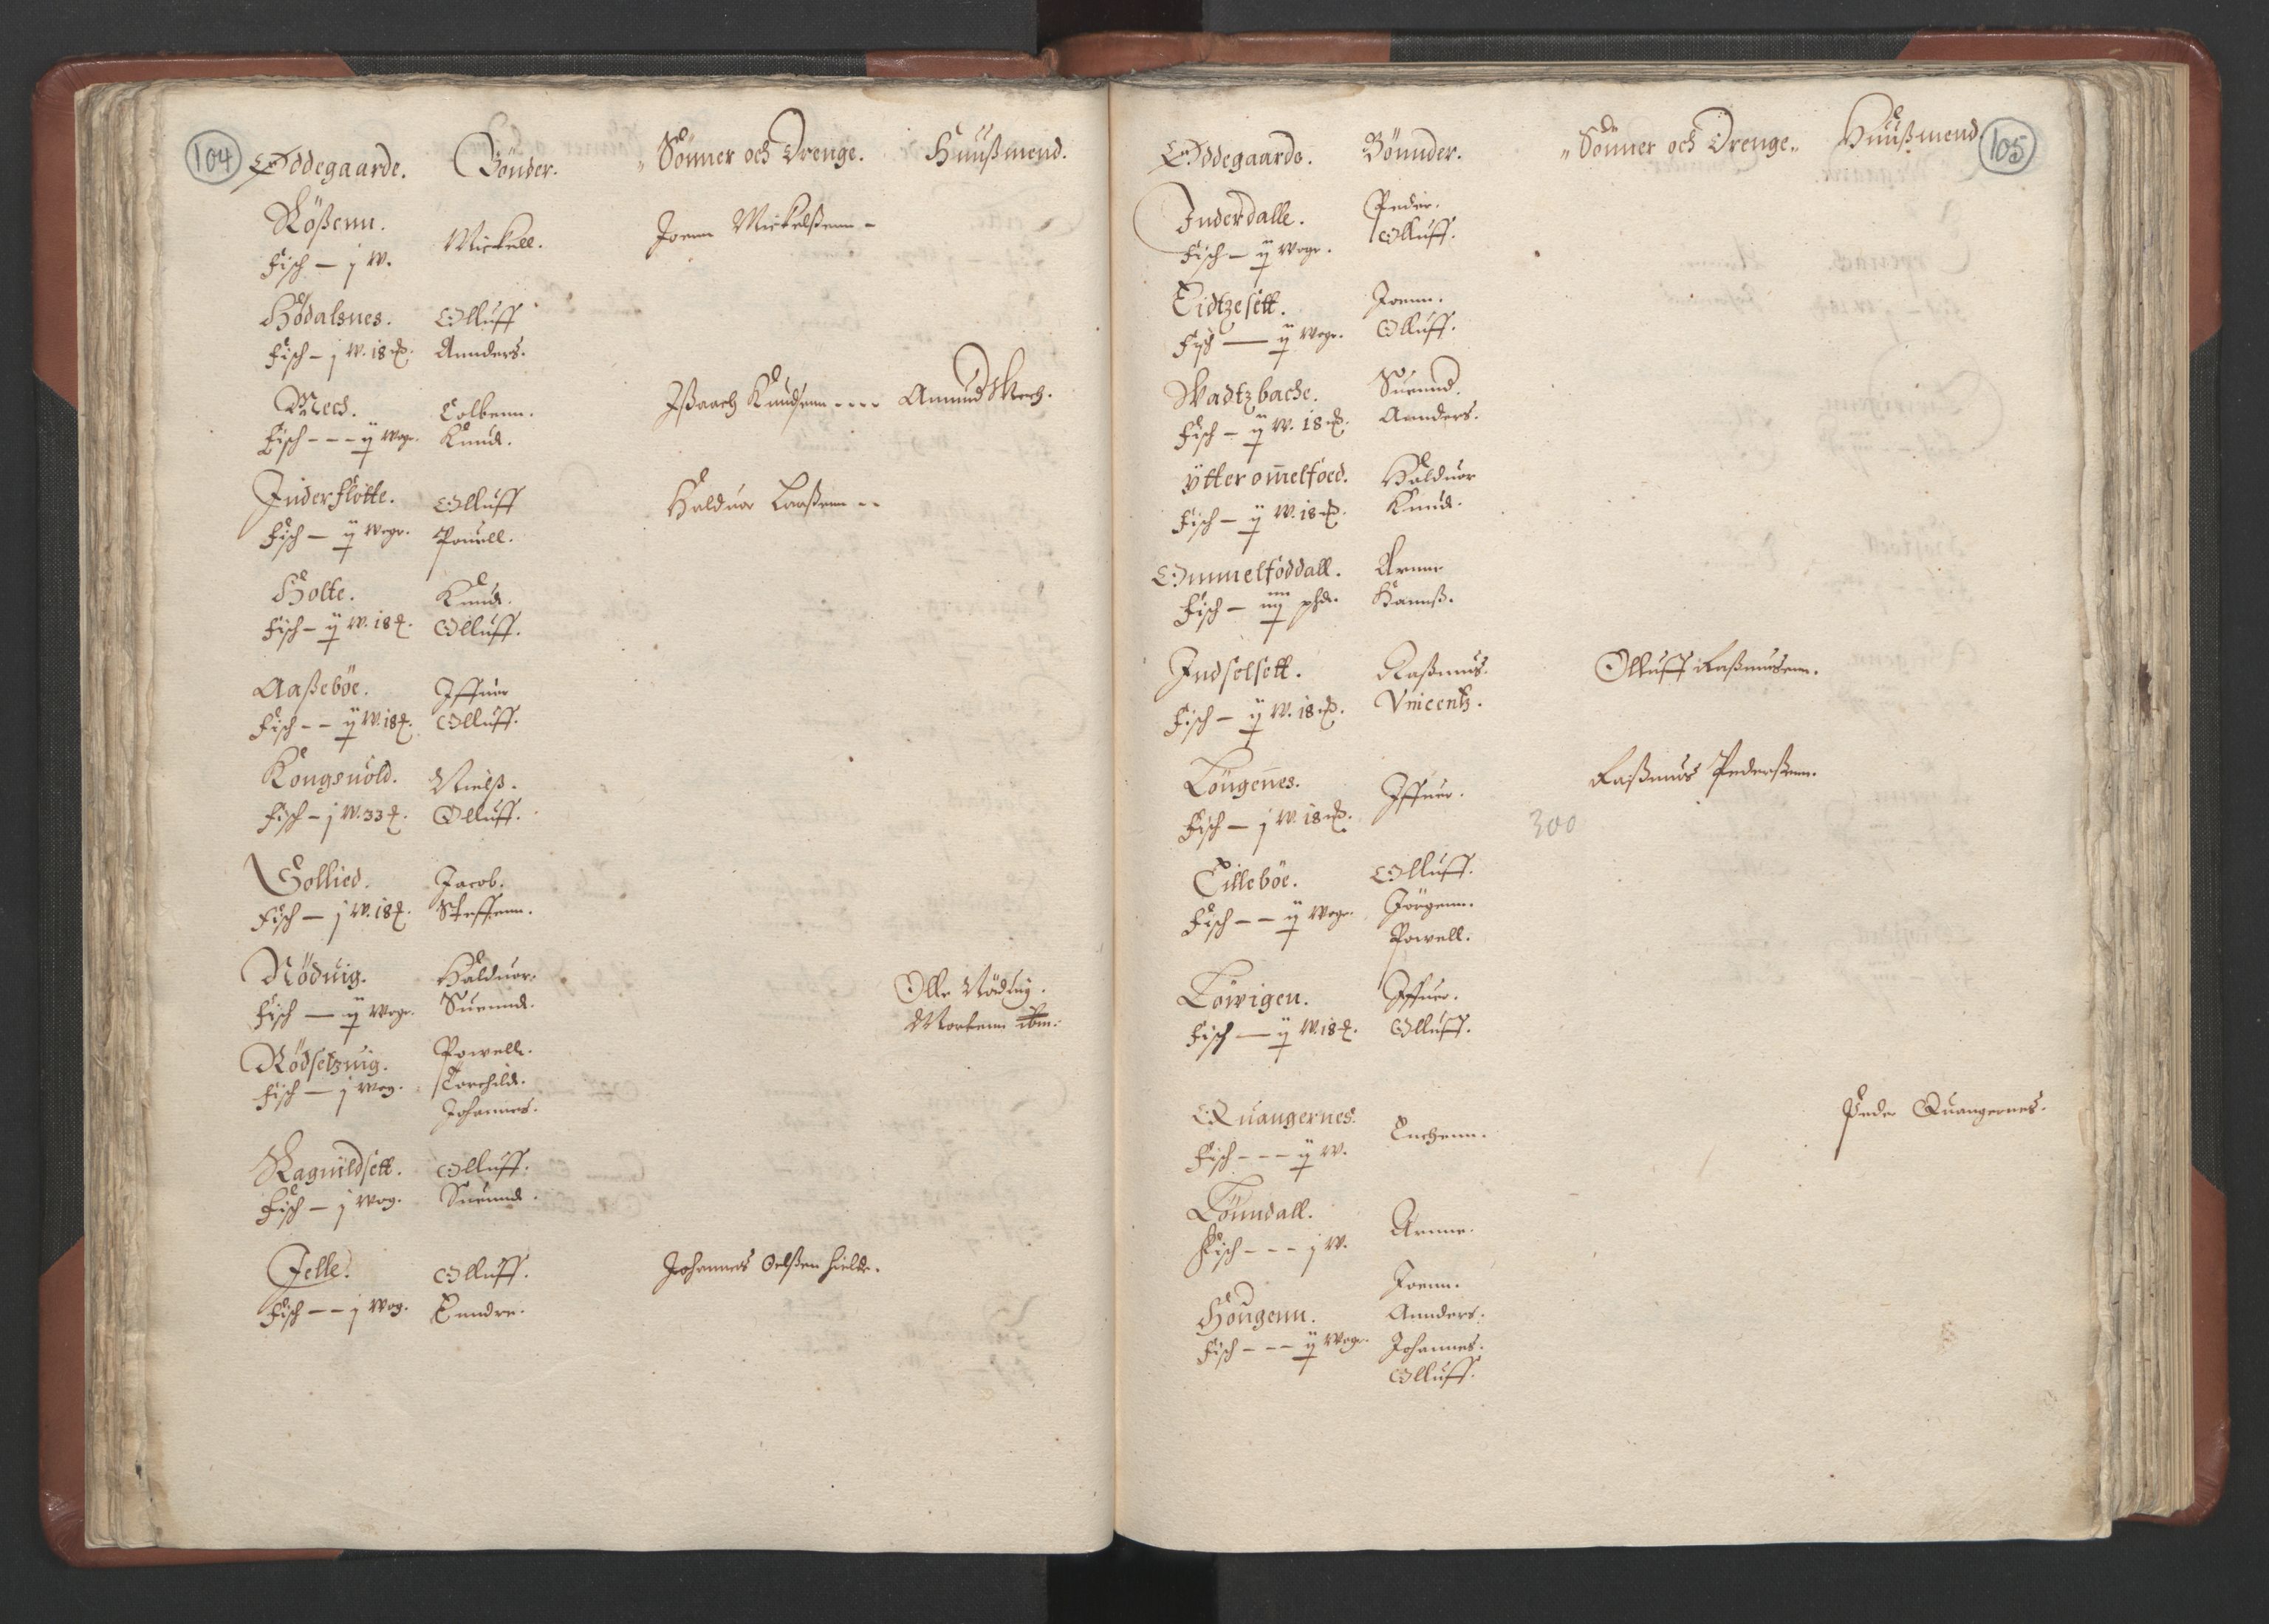 104 Ødegaarde. Bönder. Sönner och Drenge. Huußmend.
Rößenn. Mickell. Joenn Mickelßenn -
Fisch - j W.
Hödalsnes. Olluff
Fisch - j W. 18 ℔. Annders.
Mech. Colbenn. Ißaach Knudsenn - - - - Amund Mech.
Fisch - - - ij Woge. Knud.
Inderflotte. Olluff Halduor Larßenn - -
Fisch - ij Woge. Pouell.
Holte. Knud.
Fisch - ij W. 18 ℔. Olluff.
Aaßeböe. Iffuer
Fisch - - ij W. 18 ℔. Olluff.
Kongsuold. Nielß.
Fisch - j W. 33 ℔. Olluff.
Sollied. Jacob.
Fisch - j W. 18 ℔. Steffenn.
Nöduig. Halduor. Olle Nöduig.
Fisch - ij Woge. Suennd. Mortenn ibm:
Rödsetzuig. Powell.
Fisch - j Wog. Torchild.
Johannes.
Ragnildsett. Olluff.
Fisch - j Wog. Suennd.
Jelle. Olluff. Johannes Oelßen Hielde.
Fisch - - j Wog. Enndre.
Ødegaarde. Bönnder. Sönner och Drenge. Huußmend 105
Inderdalle. Peder.
Fisch - ij Woge. Olluff.
Eidtzesett. Joenn.
Fisch - ij Woge. Olluff.
Wadtzbache. Suennd.
Fisch - ij W. 18 ℔. Annders.
Ytter om̄elfoed. Halduor
Fisch - ij W. 18 ℔. Knud.
Ommelföddall. Arnne
Fisch - iiij phd. Hannß.
Indselsett. Raßmus. Olluff Raßmusenn.
Fisch - ij W. 18 ℔. Vincentz.
Löngen̄es. Iffuer. Raßmus Pederßenn.
Fisch - j W. 18 ℔.
300
Eilleböe. Olluff.
Fisch - - ij Woge. Jörgenn.
Powell.
Löwigen. Iffuer.
Fisch - ij W. 18 ℔. Olluff.
Quangernes. Enchenn. Peder Quangernes.
Fisch - - - ij W.
Lönndall. Arnne.
Fisch - - - j W.
Joenn.
Hougenn. Annders.
Fisch - - - ij Woge. Johannes.
Olluff.